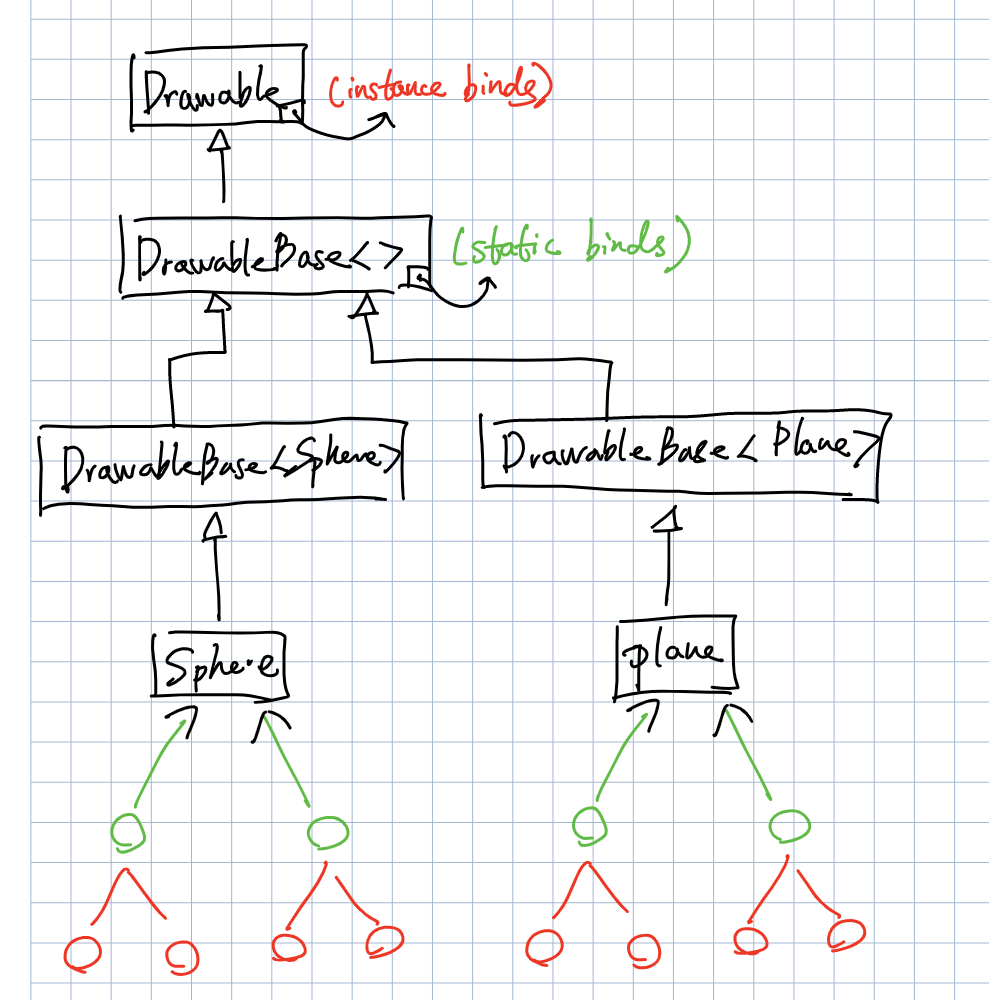 Drawable
(instance binds)
DrawableBase<>
(static binds)
DrawableBase<Sphere>
DrawableBase<Plane>
Sphere
plane